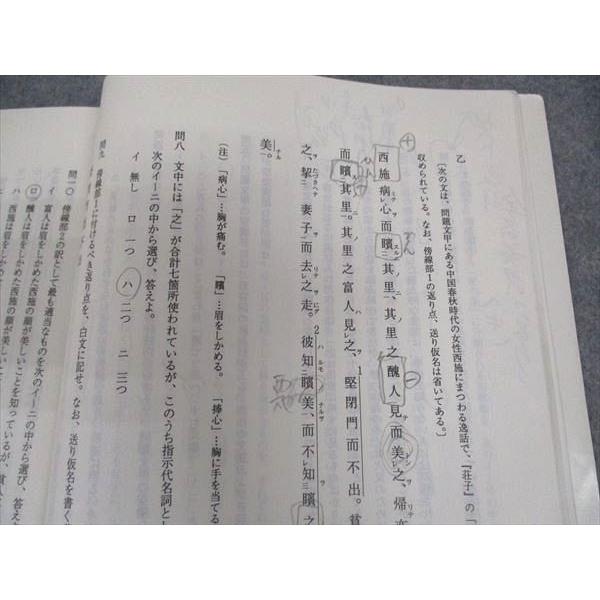 乙
〔次の文は、問題文甲にある中国春秋時代の女性西施にまつわる逸話で、『荘子』の「
収められている。なお、傍線部1の返り点、送り仮名は省いてある。〕
西施病心而矉其里、其里之醜人見而美之、帰
而矉其里。其里之富人見之、堅閉門而不出。貧
之、挈妻子而去之走。彼知矉美、而不知矉之
美。
(注)「病心」…胸が痛む。 「矉」…眉をしかめる。 「捧心」…胸に手を当てる
問八 文中には「之」が合計七箇所使われているが、このうち指示代名詞とし
次のイ―ニの中から選び、答えよ。
イ 無し ロ 一つ ハ 二つ ニ 三つ
問九 傍線部1に付けるべき返り点を、白文に記せ。なお、送り仮名を書く
問一〇 傍線部2の訳として最も適当なものを次のイ―ニの中から選び、答え
イ 富人は眉をしかめた西施の顔が美しいこと
ロ 醜人は眉をしかめた西施の顔が美しいことを知っているが、
ハ 西施は眉をしかめ